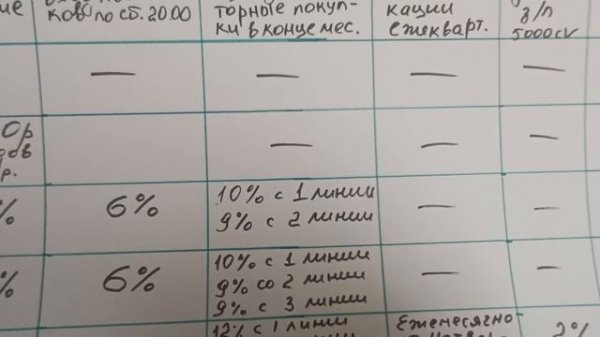 ие
ков по ст. 20.00
торные покуп-
ки в конце мес.
кации
ежекварт.
з/п
5000 cv
— — — —
Ор
дов
р.
— — —
%
6%
10% с 1 линии
9% с 2 линии
— —
%
6%
10% с 1 линии
9% со 2 линии
9% с 3 линии
— —
12% с 1 линии
Ежемесячно
2%